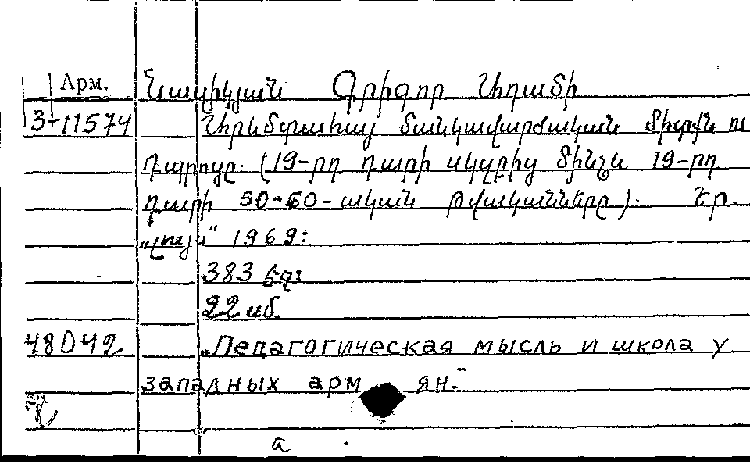 Арм. Նասիկյան Գրիգոր Նիղամի
3-11574 Արևմտահայ մանկավարժական միտքն ու
դպրոցը. (19-րդ դարի սկզբից մինչև 19-րդ
դարի 50-60-ական թվականները). Եր.
„Լույս" 1969:
383 էջ:
22 սմ.
48042 „Педагогическая мысль и школа у
западных арм ян."
а